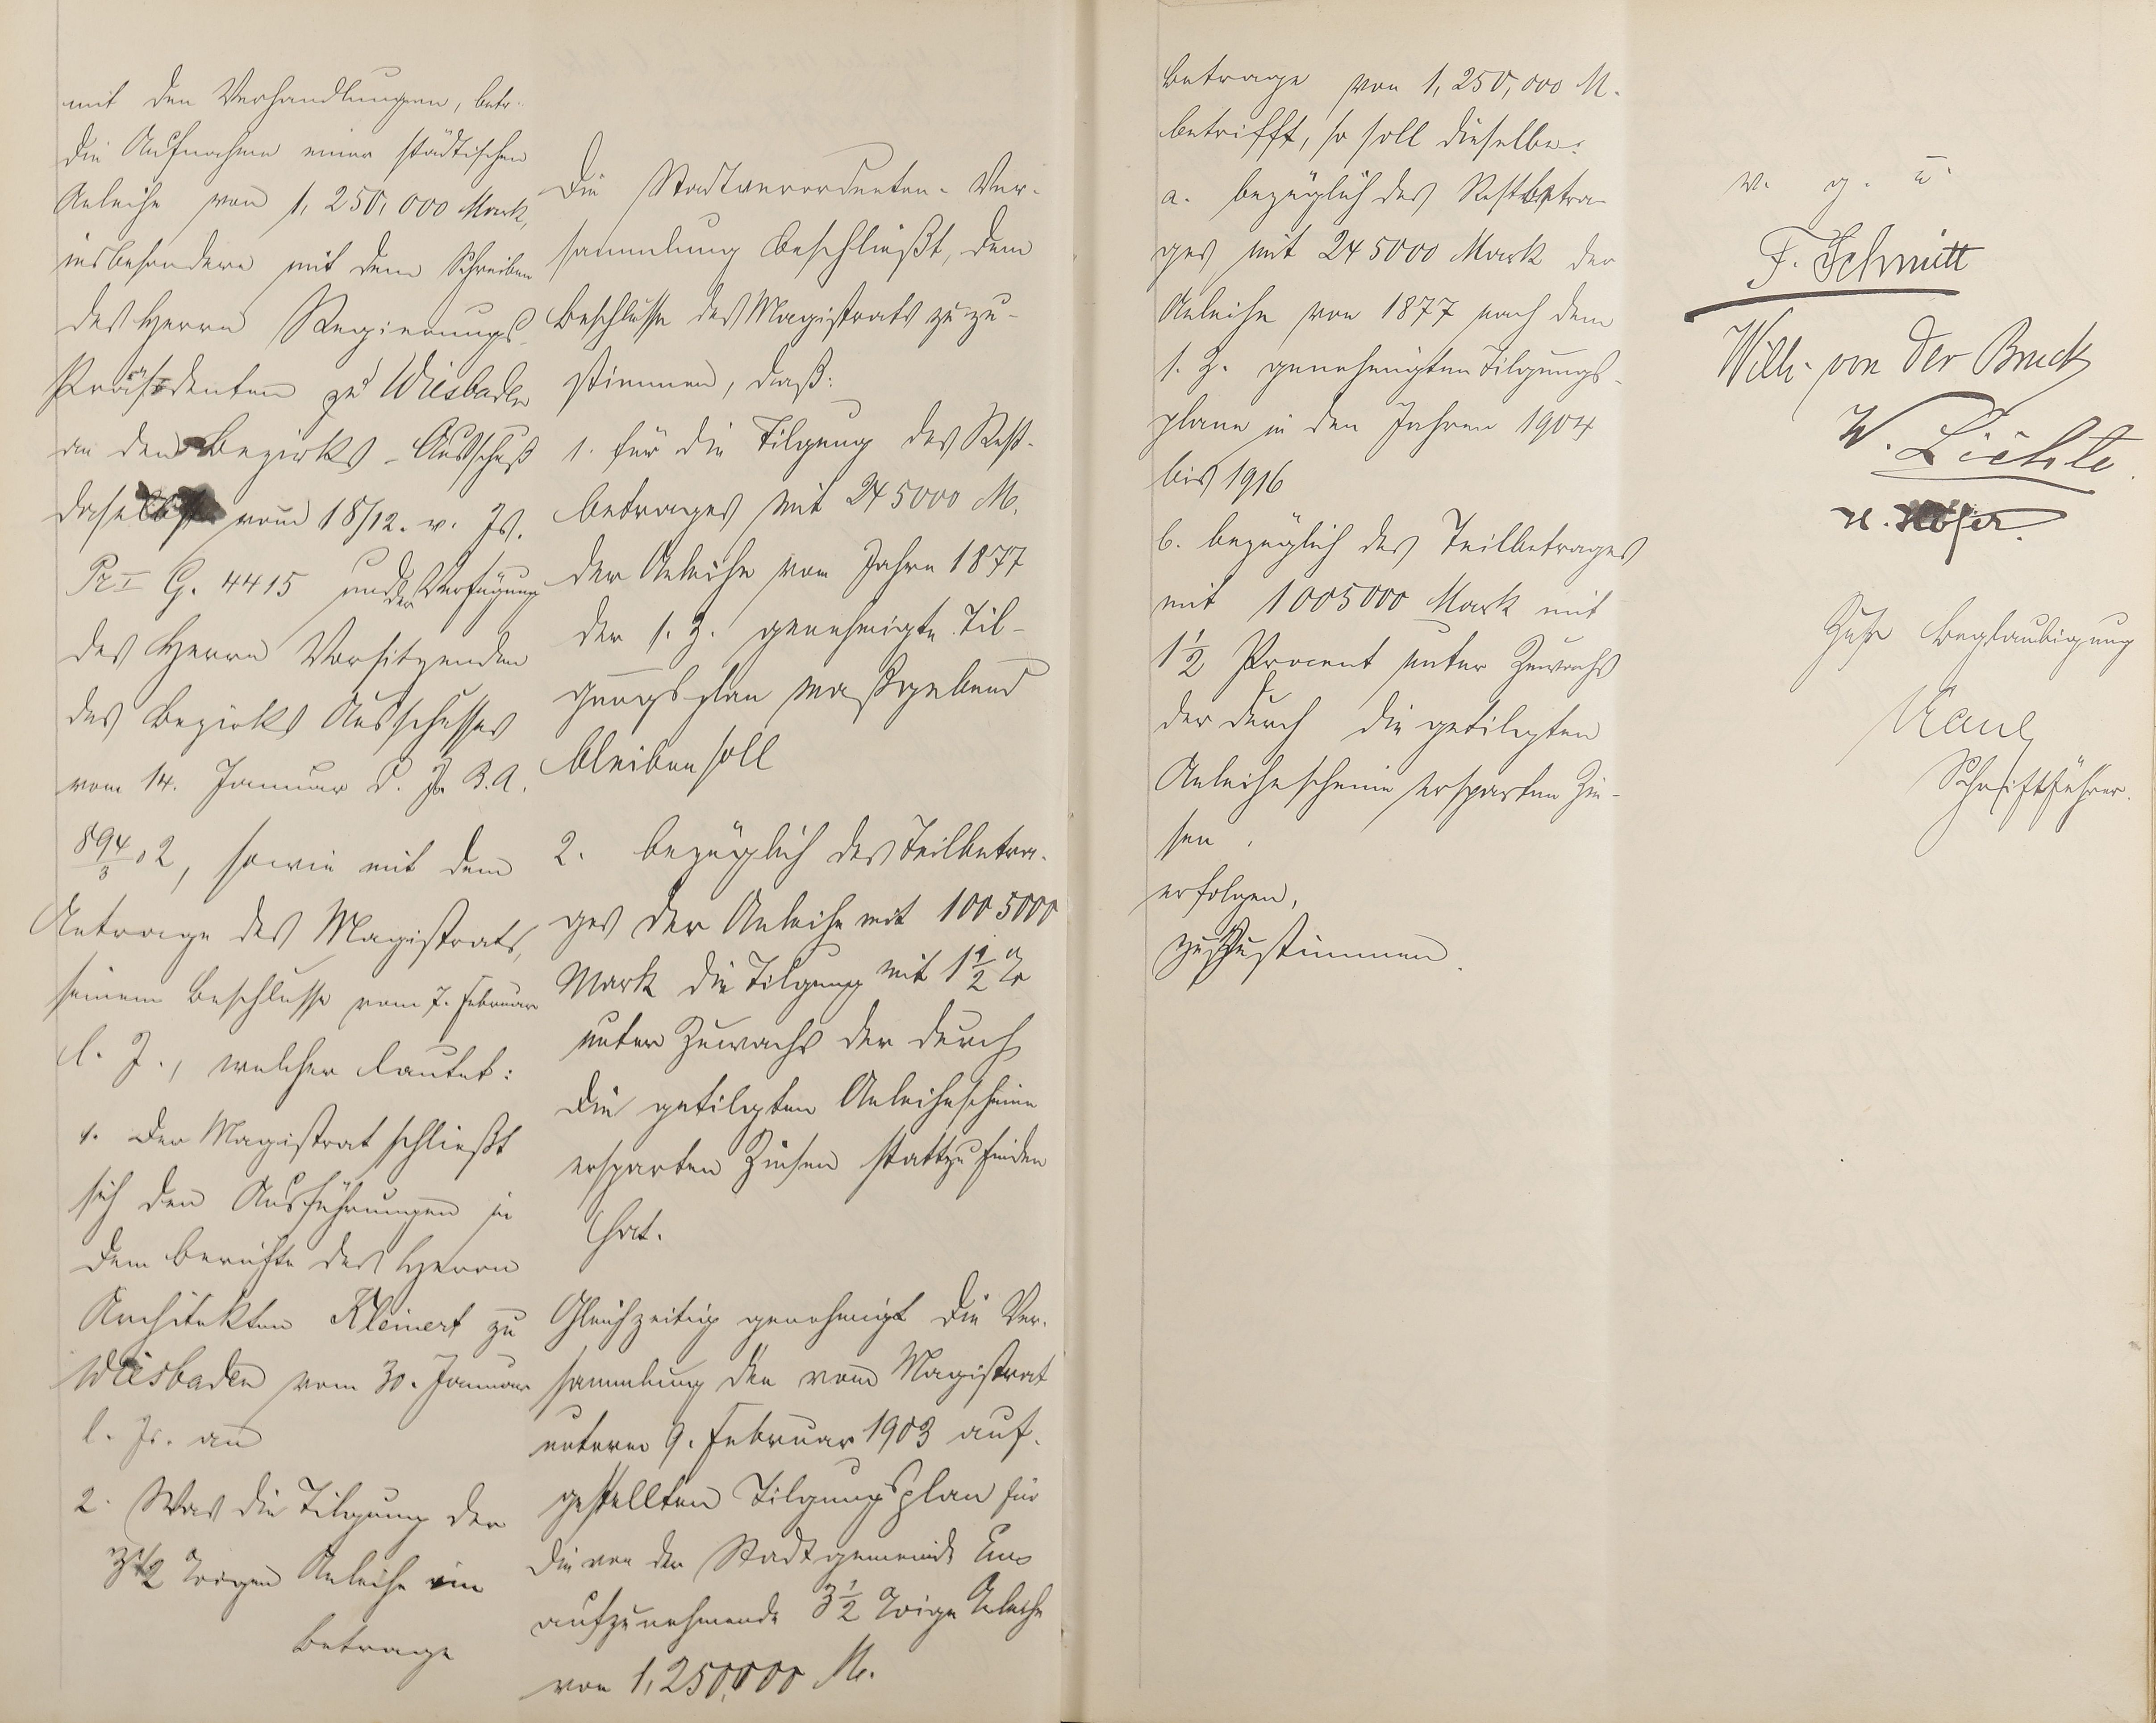 mit den Verhandlungen, betr.
die Aufnahme einer städtischen
Anleihe von 1,250,000 Mark,
insbesondere mit dem Schreiben
des Herrn Regierungs-
Präsidenten zu Wiesbaden
an den Bezirks-Ausschuß
daselbst vom 18/12. v. Js.
Pr I G. 4415 und der Verfügung
des Herrn Vorsitzenden
des Bezirks Ausschusses
vom 14. Januar d. Js. B.A.
894/3 02, sowie mit dem
Antrage des Magistrats,
seinem Beschlusse vom 7. Februar
l. J., welcher lautet:
1. Der Magistrat schließt
sich den Ausführungen in
dem Berichte des Herrn
Architekten Kleinert zu
Wiesbaden vom 30. Januar
l. Js. an
2. Was die Tilgung der
3 1/2 %igen Anleihe im
Betrage
Die Stadtverordneten-Ver-
sammlung beschließt, dem
Beschlusse des Magistrats zuzu-
stimmen, daß:
1. für die Tilgung des Rest-
betrages mit 245000 M.
der Anleihe vom Jahre 1877
der s. Z. genehmigte Til-
gungsplan maßgebend
bleiben soll
2. bezüglich des Teilbetra-
ges der Anleihe mit 1005000
Mark die Tilgung mit 1 1/2 %
unter Zuwachs der durch
die getilgten Anleihescheine
ersparten Zinsen stattzufinden
hat.
Gleichzeitig genehmigt die Ver-
sammlung den vom Magistrat
unterm 9. Februar 1903 auf-
gestellten Tilgungsplan für
die von der Stadtgemeinde Ems
aufzunehmende 3 1/2 %ige Anleihe
von 1,250,000 M.
Betrage von 1,250,000 M.
betrifft, so soll dieselbe:
a. bezüglich des Restbetra-
ges mit 245000 Mark der
Anleihe von 1877 nach dem
s. Z. genehmigten Tilgungs-
plane in den Jahren 1904
bis 1916
b. bezüglich des Teilbetrages
mit 1005000 Mark mit
1 1/2 Procent unter Zuwachs
der durch die getilgten
Anleihescheine ersparten Zin-
sen,
erfolgen,
zuzustimmen.
v. g. u.
F. Schmitt
Wilh. von der Bruck
W. Lichte
H. Höfer.
Zur Beglaubigung
Kaul
Schriftführer.